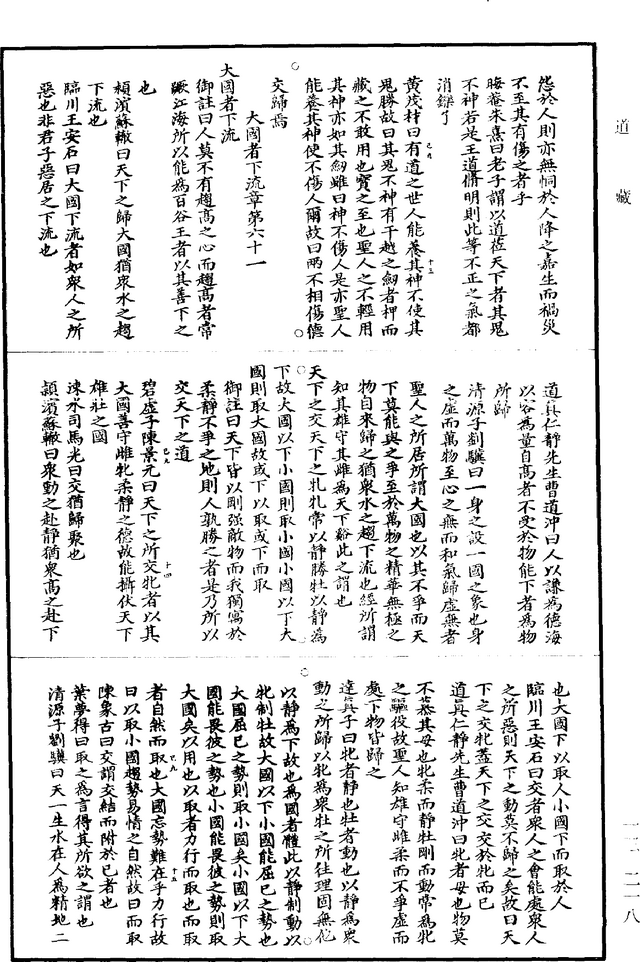 道藏
怨於人則亦無恫於人降之嘉生而禍災
不至其有傷之者乎
晦菴朱熹曰老子謂以道莅天下者其鬼
不神若是王道脩明則此等不正之氣都
消鑠了
黄茂材曰有道之世人能養其神不使其
鬼勝故曰其鬼不神有干越之劒者柙而
藏之不敢用也寶之至也聖人之不輕用
其神亦如其劒雖曰神不傷人是亦聖人
能養其神使不傷人爾故曰兩不相傷德
交歸焉
大國者下流章第六十一
大國者下流
御註曰人莫不有趨高之心而趨高者常
蹶江海所以能為百谷王者以其善下之
也
頴濱蘇轍曰天下之歸大國猶衆水之趨
下流也
臨川王安石曰大國下流者如衆人之所
惡也非君子惡居之下流也
道真仁靜先生曹道沖曰人以謙為德海
以容為量自高者不受於物能下者為物
所歸
清源子劉驥曰一身之設一國之象也身
之虚而萬物至心之無而和氣歸虚無者
聖人之所居所謂大國也以其不爭而天
下莫能與之爭至於萬物之精華無極之
物自來歸之猶衆水之趨下流也經所謂
知其雄守其雌為天下谿此之謂也
天下之交天下之牝牝常以靜勝牡以靜為
下故大國以下小國則取小國小國以下大
國則取大國故或下以取或下而取
御註曰天下皆以剛強敵物而我獨寓於
柔靜不爭之地則人孰勝之者是乃所以
交天下之道
碧虚子陳景元曰天下之所交牝者以其
大國善守雌牝柔靜之德故能攝伏天下
雄壯之國
涑水司馬光曰交猶歸聚也
頴濱蘇轍曰衆動之赴靜猶衆高之赴下
也大國下以取人小國下而取於人
臨川王安石曰交者衆人之會能處衆人
之所惡則天下之動莫不歸之矣故曰天
下之交牝蓋天下之交交於牝而已
道真仁靜先生曹道沖曰牝者母也物莫
不慕其母也牝柔而靜牡剛而動常為牝
之驅役故聖人知雄守雌柔而不爭虚而
處下物皆歸之
達真子曰牝者靜也牡者動也以靜為衆
動之所歸以牝為衆牡之所往理固無佗
以靜為下故也為國者體此以靜制動以
牝制牡故大國以下小國能屈已之勢也
大國屈已之勢則取小國矣小國以下大
國能畏彼之勢也小國能畏彼之勢則取
大國矣以用也以取者力行而取也而取
者自然而取也大國忘勢難在乎力行故
曰以取小國趨勢易情之自然故曰而取
陳象古曰交謂交結而附於已者也
葉夢得曰取之為言得其所欲之謂也
清源子劉驥曰天一生水在人為精地二
一二-二一八